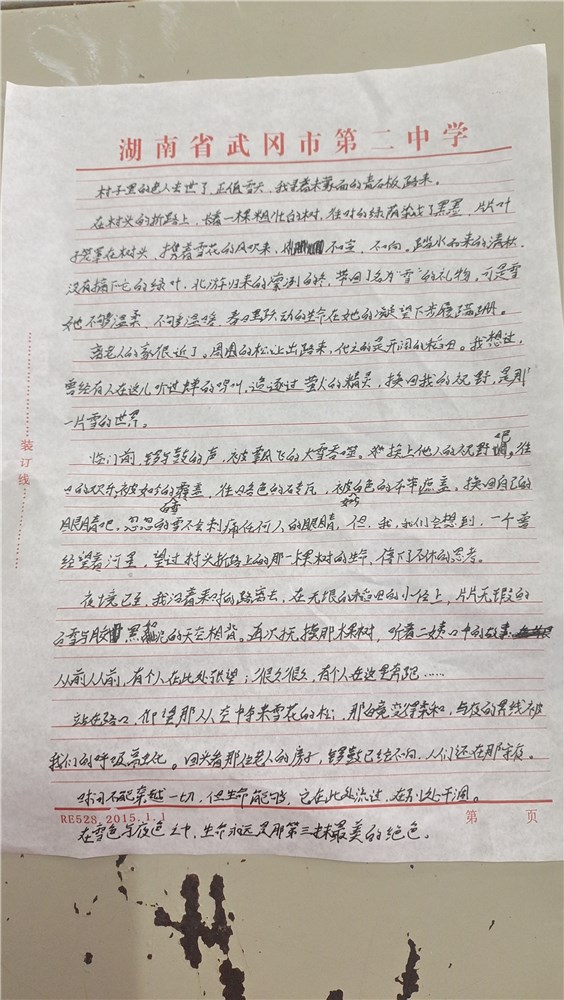 湖南省武冈市第二中学
村子里的老人去世了，正值雪天，我呈着木蒙面的青石板路来。
在村头的折路上，长着一棵粗壮的树，往时的绿荫染成了黑墨，片片叶
子笼罩在村头，携着雪花的风吹来，不空，不响。踏水而来的清秋，
没有摘下它的绿叶，北游归来的凛冽的冬，带回了名为"雪"的礼物，可是雪
她不够温柔，不够温暖，春日里跃动的生命在她的凝望下步履蹒跚。
离老人的家很近了。周围的松让出路来，代之的是开阔的稻田。我想过，
曾经有人在这儿听过蝉的鸣叫，追逐过萤火的精灵，换回我的视野，是那
一片雪的世界。
临门前，锣与鼓的声，被飘飞的大雪吞噬。她挨上他人的视野吧。往
日的欢乐被如今的霜盖，往日各色的砖瓦，被白色的本率遮盖，换回自己的
眼睛吧，忽忽的雪不会刺痛任何人的眼睛，但，我，我们会想到，一个曾
经望着河里，望过村头折路上的那一棵树的生命，停下了不休的思考。
夜境已至，我沿着来时的路离去，在无垠的稻田的小径上，片片无瑕的
白雪与黑的天空相背。再次抚摸那棵树，听着二姨口中的故事：
从前从前，有个人在此处张望；很久很久，有个人在这里奔跑……
站在路口，仰望那从空中带来雪花的松，那白境变得柔和，与夜的界线被
我们的呼吸高化。回头看那位老人的房子，锣鼓已经不响，人们还在那守夜。
时间不能穿越一切，但生命能够，它在此处流过，在别处干涸。
RE528，2015.1.1
第 页
在雪色与夜色之中，生命永远是那第三抹最美的绝色。
装订线